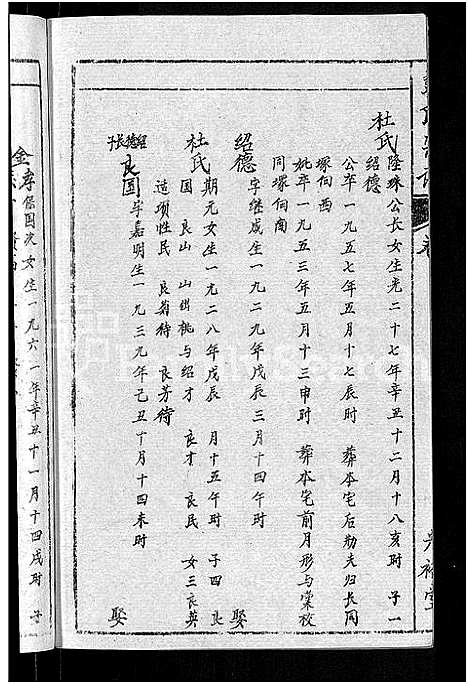 杜氏 隆珠公長女生光二十七年辛丑十二月十八亥时 子一
绍德
公卒一九五七年五月十七辰时 葬本宅后勘夫归长同
塚向西
妣卒一九五三年五月十三申时 葬本宅前月形与棠校
同塚向南
绍德 字继咸生一九二九年戊辰三月十四午时 娶
杜氏 期元女生一九二八年戊辰 月十五午时 子四 良
国 良山 山出桃与绍才 良才 良民 女三良英
造项性民 良菊待 良芳待
绍德长子 良国 字嘉明生一九三九年己丑丁月十四未时 娶
李保国次女生一九六一年辛丑十一月十四戌时 子